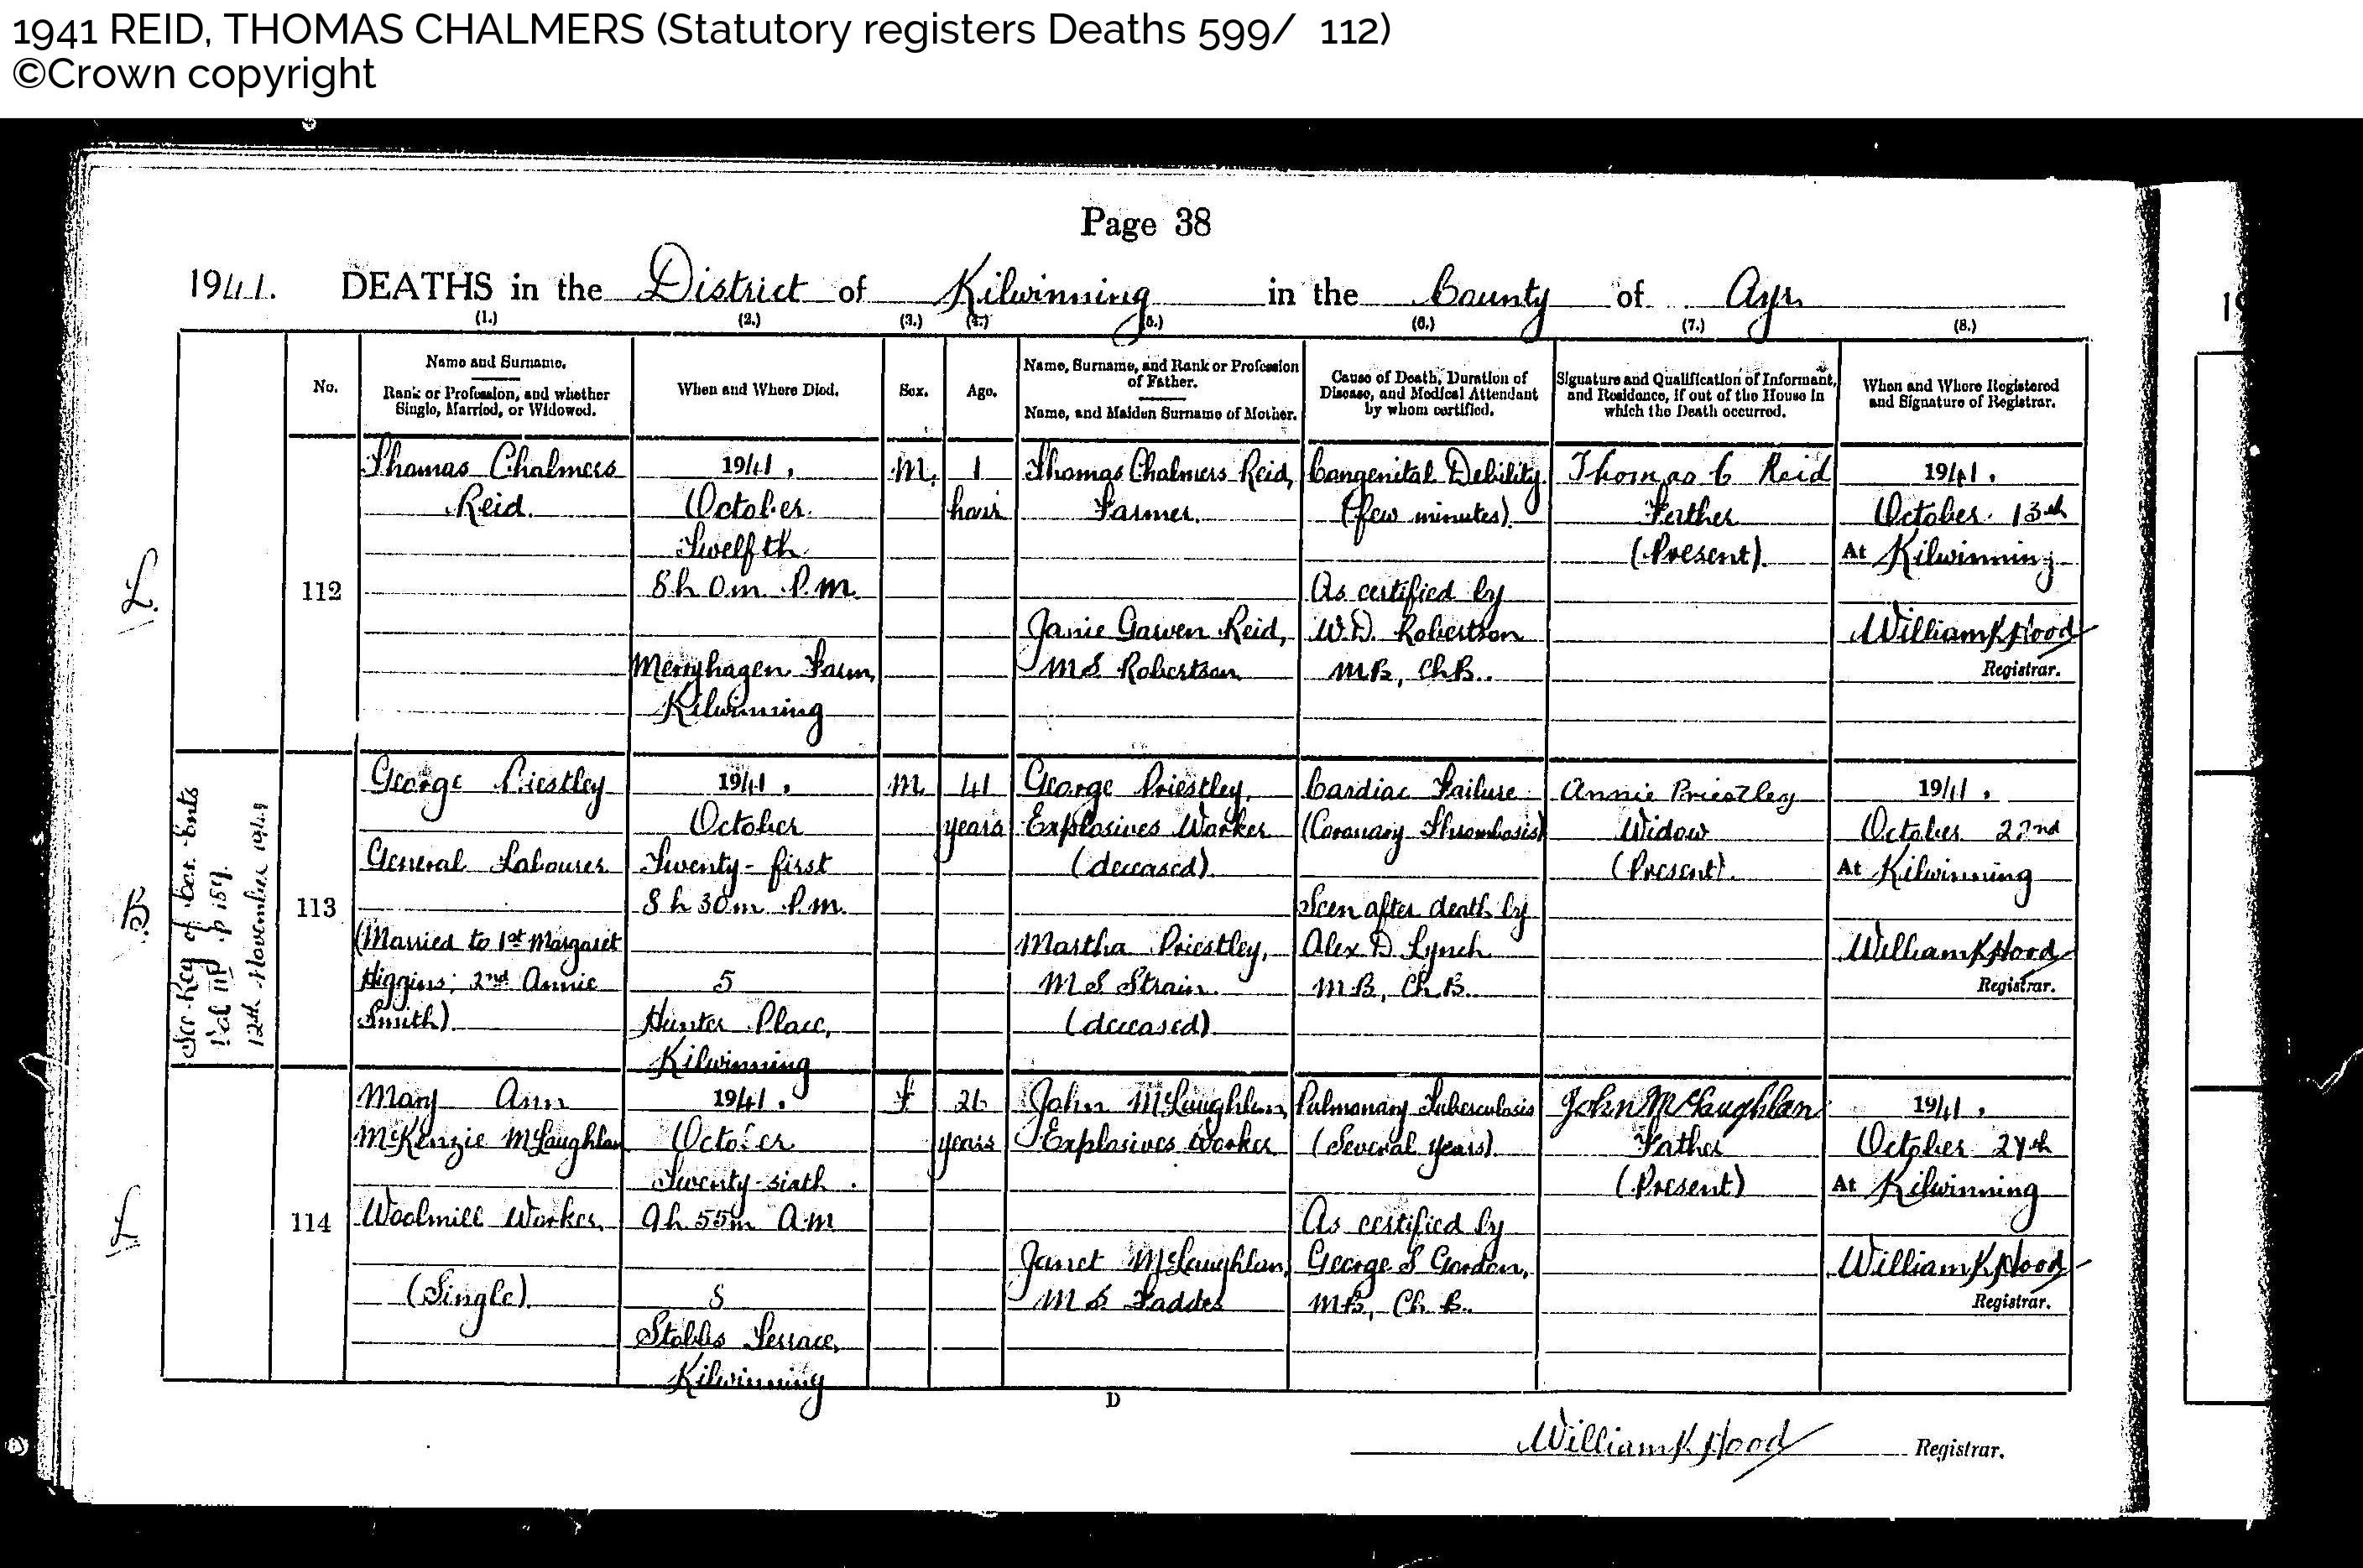 1941 REID, THOMAS CHALMERS (Statutory registers Deaths 599/ 112)
©Crown copyright
Page 38
1941. DEATHS in the District of Kilwinning in the County of Ayr
(1.) (2.) (3.) (4.) (5.) (6.) (7.) (8.)
No.
Name and Surname.
Rank or Profession, and whether
Single, Married, or Widowed.
When and Where Died.
Sex.
Age.
Name, Surname, and Rank or Profession
of Father.
Name, and Maiden Surname of Mother.
Cause of Death, Duration of
Disease, and Medical Attendant
by whom certified.
Signature and Qualification of Informant,
and Residence, if out of the House in
which the Death occurred.
When and Where Registered
and Signature of Registrar.
L
112
Thomas Chalmers
Reid.
1941,
October
Twelfth
8 h 0 m P.M.
Merryhagen Farm,
Kilwinning
M.
1
hour
Thomas Chalmers Reid,
Farmer.
Janie Gawen Reid,
M S Robertson
Congenital Debility
(few minutes)
As certified by
W.D. Robertson
M.B, Ch.B.
Thomas C Reid
Father
(Present).
1941.
October 13th
At Kilwinning
William K Hood
Registrar.
See Reg of Cor. Ents
Vol III p 159.
12th November 1941
113
George Priestley
General Labourer
(Married to 1st Margaret
Higgins; 2nd Annie
Smith)
1941,
October
Twenty-first
8 h 30 m P.M.
5
Hunter Place,
Kilwinning
M
41
years
George Priestley,
Explosives Worker
(deceased)
Martha Priestley,
M S Strain
(deceased)
Cardiac Failure
(Coronary Thrombosis)
Seen after death by
Alex D Lynch
M.B, Ch.B.
Annie Priestley
Widow
(Present).
1941,
October 22nd
At Kilwinning
William K Hood
Registrar.
L
114
Mary Ann
McKenzie McLaughlan
Woolmill Worker,
(Single)
1941,
October
Twenty-sixth
9 h 55 m A.M
8
Stobbs Terrace,
Kilwinning
F
26
years
John McLaughlan,
Explosives Worker
Janet McLaughlan,
M S Faddes
Pulmonary Tuberculosis
(Several years)
As certified by
George S Gordon,
M.B, Ch.B.
John McLaughlan
Father
(Present)
1941,
October 27th
At Kilwinning
William K Hood
Registrar.
D
William K Hood Registrar.